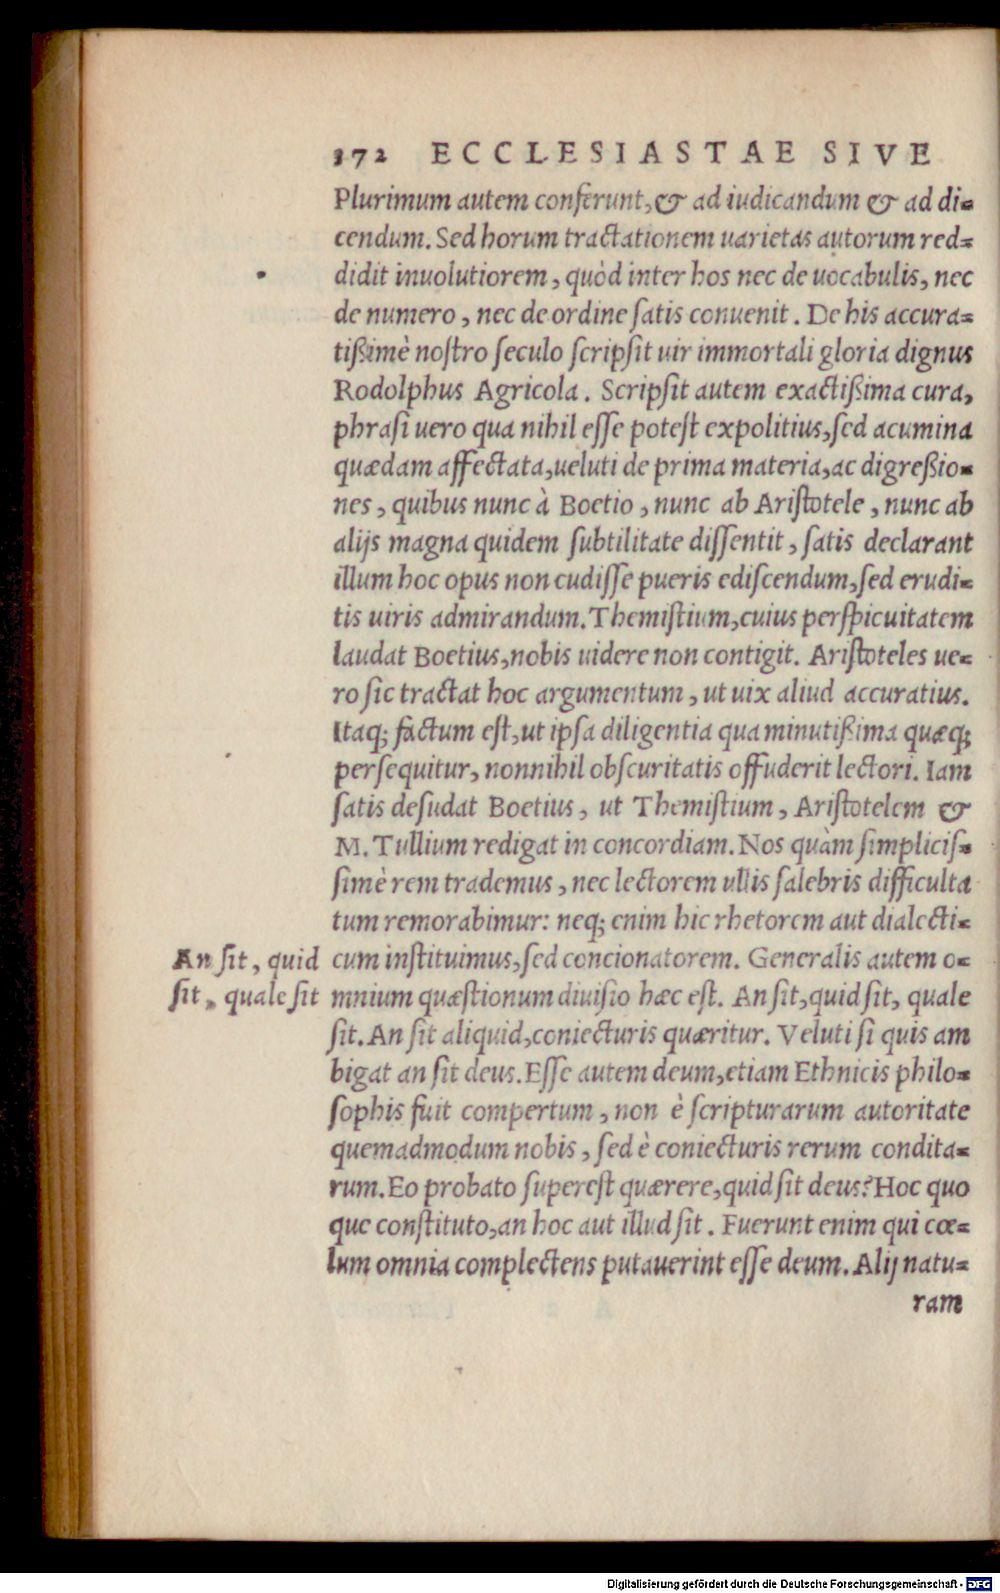 372 ECCLESIASTAE SIVE
Plurimum autem conferunt, & ad iudicandum & ad di-
cendum. Sed horum tractationem uarietas autorum red-
didit inuolutiorem, quòd inter hos nec de uocabulis, nec
de numero, nec de ordine ſatis conuenit. De his accura-
tißimè noſtro ſeculo ſcripſit uir immortali gloria dignus
Rodolphus Agricola. Scripſit autem exactißima cura,
phraſi uero qua nihil eſſe poteſt expolitius, ſed acumina
quædam affectata, ueluti de prima materia, ac digreßio-
nes, quibus nunc à Boetio, nunc ab Ariſtotele, nunc ab
alijs magna quidem ſubtilitate diſſentit, ſatis declarant
illum hoc opus non cudiſſe pueris ediſcendum, ſed erudi-
tis uiris admirandum. Themiſtium, cuius perſpicuitatem
laudat Boetius, nobis uidere non contigit. Ariſtoteles ue-
ro ſic tractat hoc argumentum, ut uix aliud accuratius.
Itaq; factum eſt, ut ipſa diligentia qua minutißima quæq;
perſequitur, nonnihil obſcuritatis offuderit lectori. Iam
ſatis deſudat Boetius, ut Themiſtium, Ariſtotelem &
M. Tullium redigat in concordiam. Nos quàm ſimpliciſ-
ſimè rem trademus, nec lectorem ullis ſalebris difficulta
tum remorabimur: neq; enim hic rhetorem aut dialecti-
An ſit, quid
ſit, quale ſit
cum inſtituimus, ſed concionatorem. Generalis autem o-
mnium quæſtionum diuiſio hæc eſt. An ſit, quid ſit, quale
ſit. An ſit aliquid, coniecturis quæritur. Veluti ſi quis am
bigat an ſit deus. Eſſe autem deum, etiam Ethnicis philo-
ſophis fuit compertum, non è ſcripturarum autoritate
quemadmodum nobis, ſed è coniecturis rerum condita-
rum. Eo probato ſupereſt quærere, quid ſit deus? Hoc quo
que conſtituto, an hoc aut illud ſit. Fuerunt enim qui cœ-
lum omnia complectens putauerint eſſe deum. Alij natu-
ram
Digitalisierung gefördert durch die Deutsche Forschungsgemeinschaft - DFG